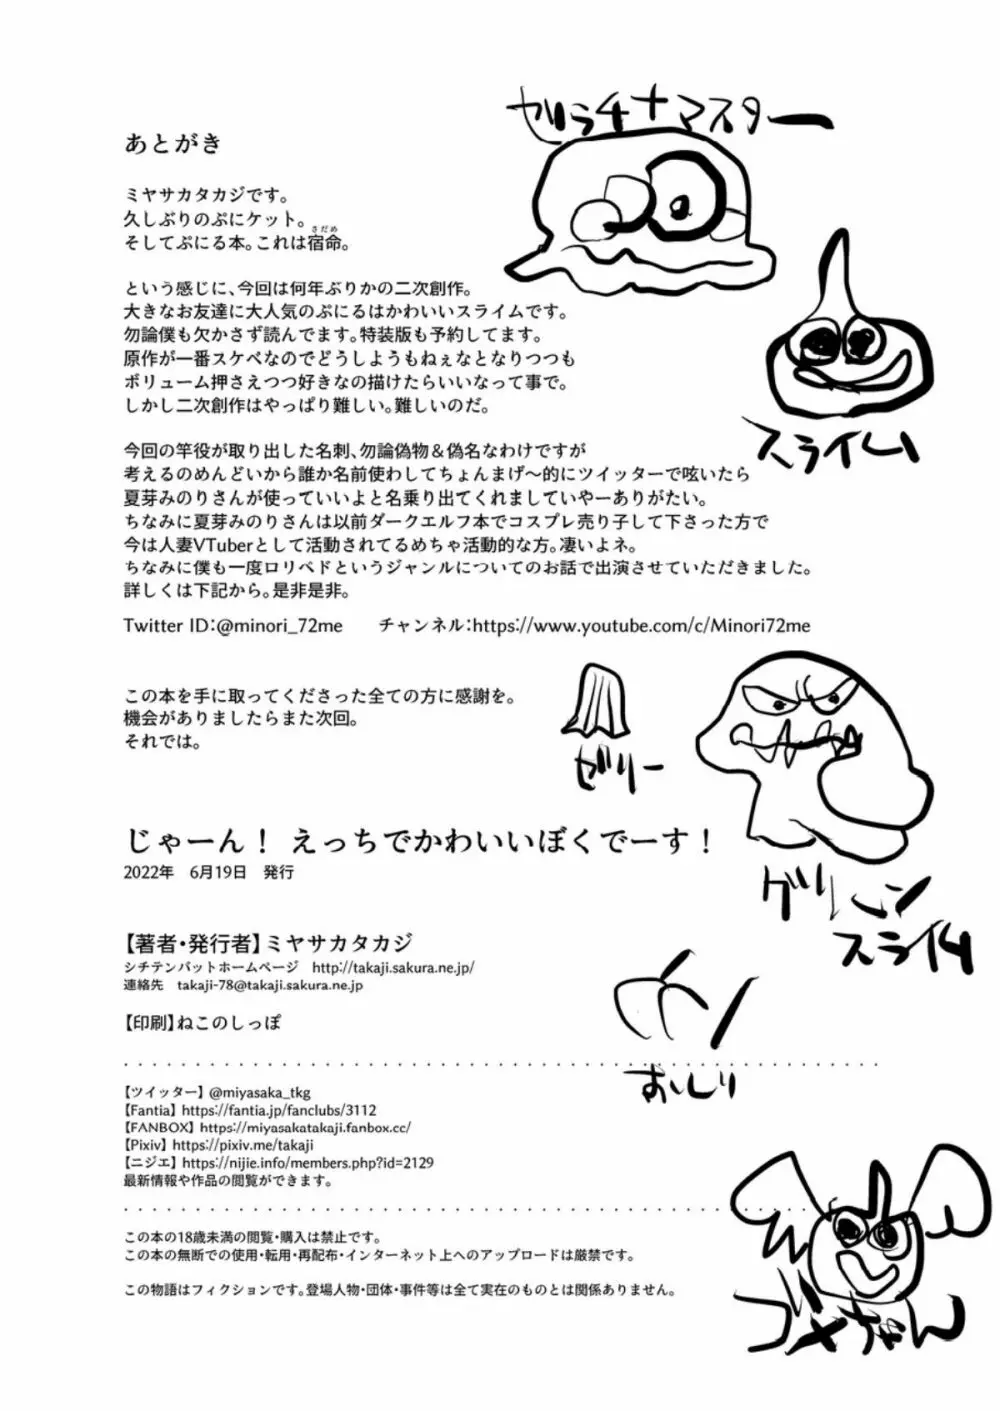 ゼラチナマスター
あとがき
ミヤサカタカジです。
久しぶりのぷにケット。
そしてぷにる本。これは宿命。
さだめ
という感じに、今回は何年ぶりかの二次創作。
大きなお友達に大人気のぷにるはかわいいスライムです。
勿論僕も欠かさず読んでます。特装版も予約してます。
原作が一番スケベなのでどうしようもねぇなとなりつつも
ボリューム押さえつつ好きなの描けたらいいなって事で。
しかし二次創作はやっぱり難しい。難しいのだ。
スライム
今回の竿役が取り出した名刺、勿論偽物＆偽名なわけですが
考えるのめんどいから誰か名前使わしてちょんまげ～的にツイッターで呟いたら
夏芽みのりさんが使っていいよと名乗り出てくれましていやーありがたい。
ちなみに夏芽みのりさんは以前ダークエルフ本でコスプレ売り子して下さった方で
今は人妻VTuberとして活動されてるめちゃ活動的な方。凄いよネ。
ちなみに僕も一度ロリペドというジャンルについてのお話で出演させていただきました。
詳しくは下記から。是非是非。
Twitter ID：@minori_72me　　チャンネル：https://www.youtube.com/c/Minori72me
この本を手に取ってくださった全ての方に感謝を。
機会がありましたらまた次回。
それでは。
ゼリー
じゃーん！ えっちでかわいいぼくでーす！
2022年　6月19日　発行
グリーン
スライム
【著者・発行者】ミヤサカタカジ
シチテンバットホームページ　http://takaji.sakura.ne.jp/
連絡先　takaji-78@takaji.sakura.ne.jp
【印刷】ねこのしっぽ
おしり
【ツイッター】@miyasaka_tkg
【Fantia】https://fantia.jp/fanclubs/3112
【FANBOX】https://miyasakatakaji.fanbox.cc/
【Pixiv】https://pixiv.me/takaji
【ニジエ】https://nijie.info/members.php?id=2129
最新情報や作品の閲覧ができます。
この本の18歳未満の閲覧・購入は禁止です。
この本の無断での使用・転用・再配布・インターネット上へのアップロードは厳禁です。
この物語はフィクションです。登場人物・団体・事件等は全て実在のものとは関係ありません。
ゴメちゃん